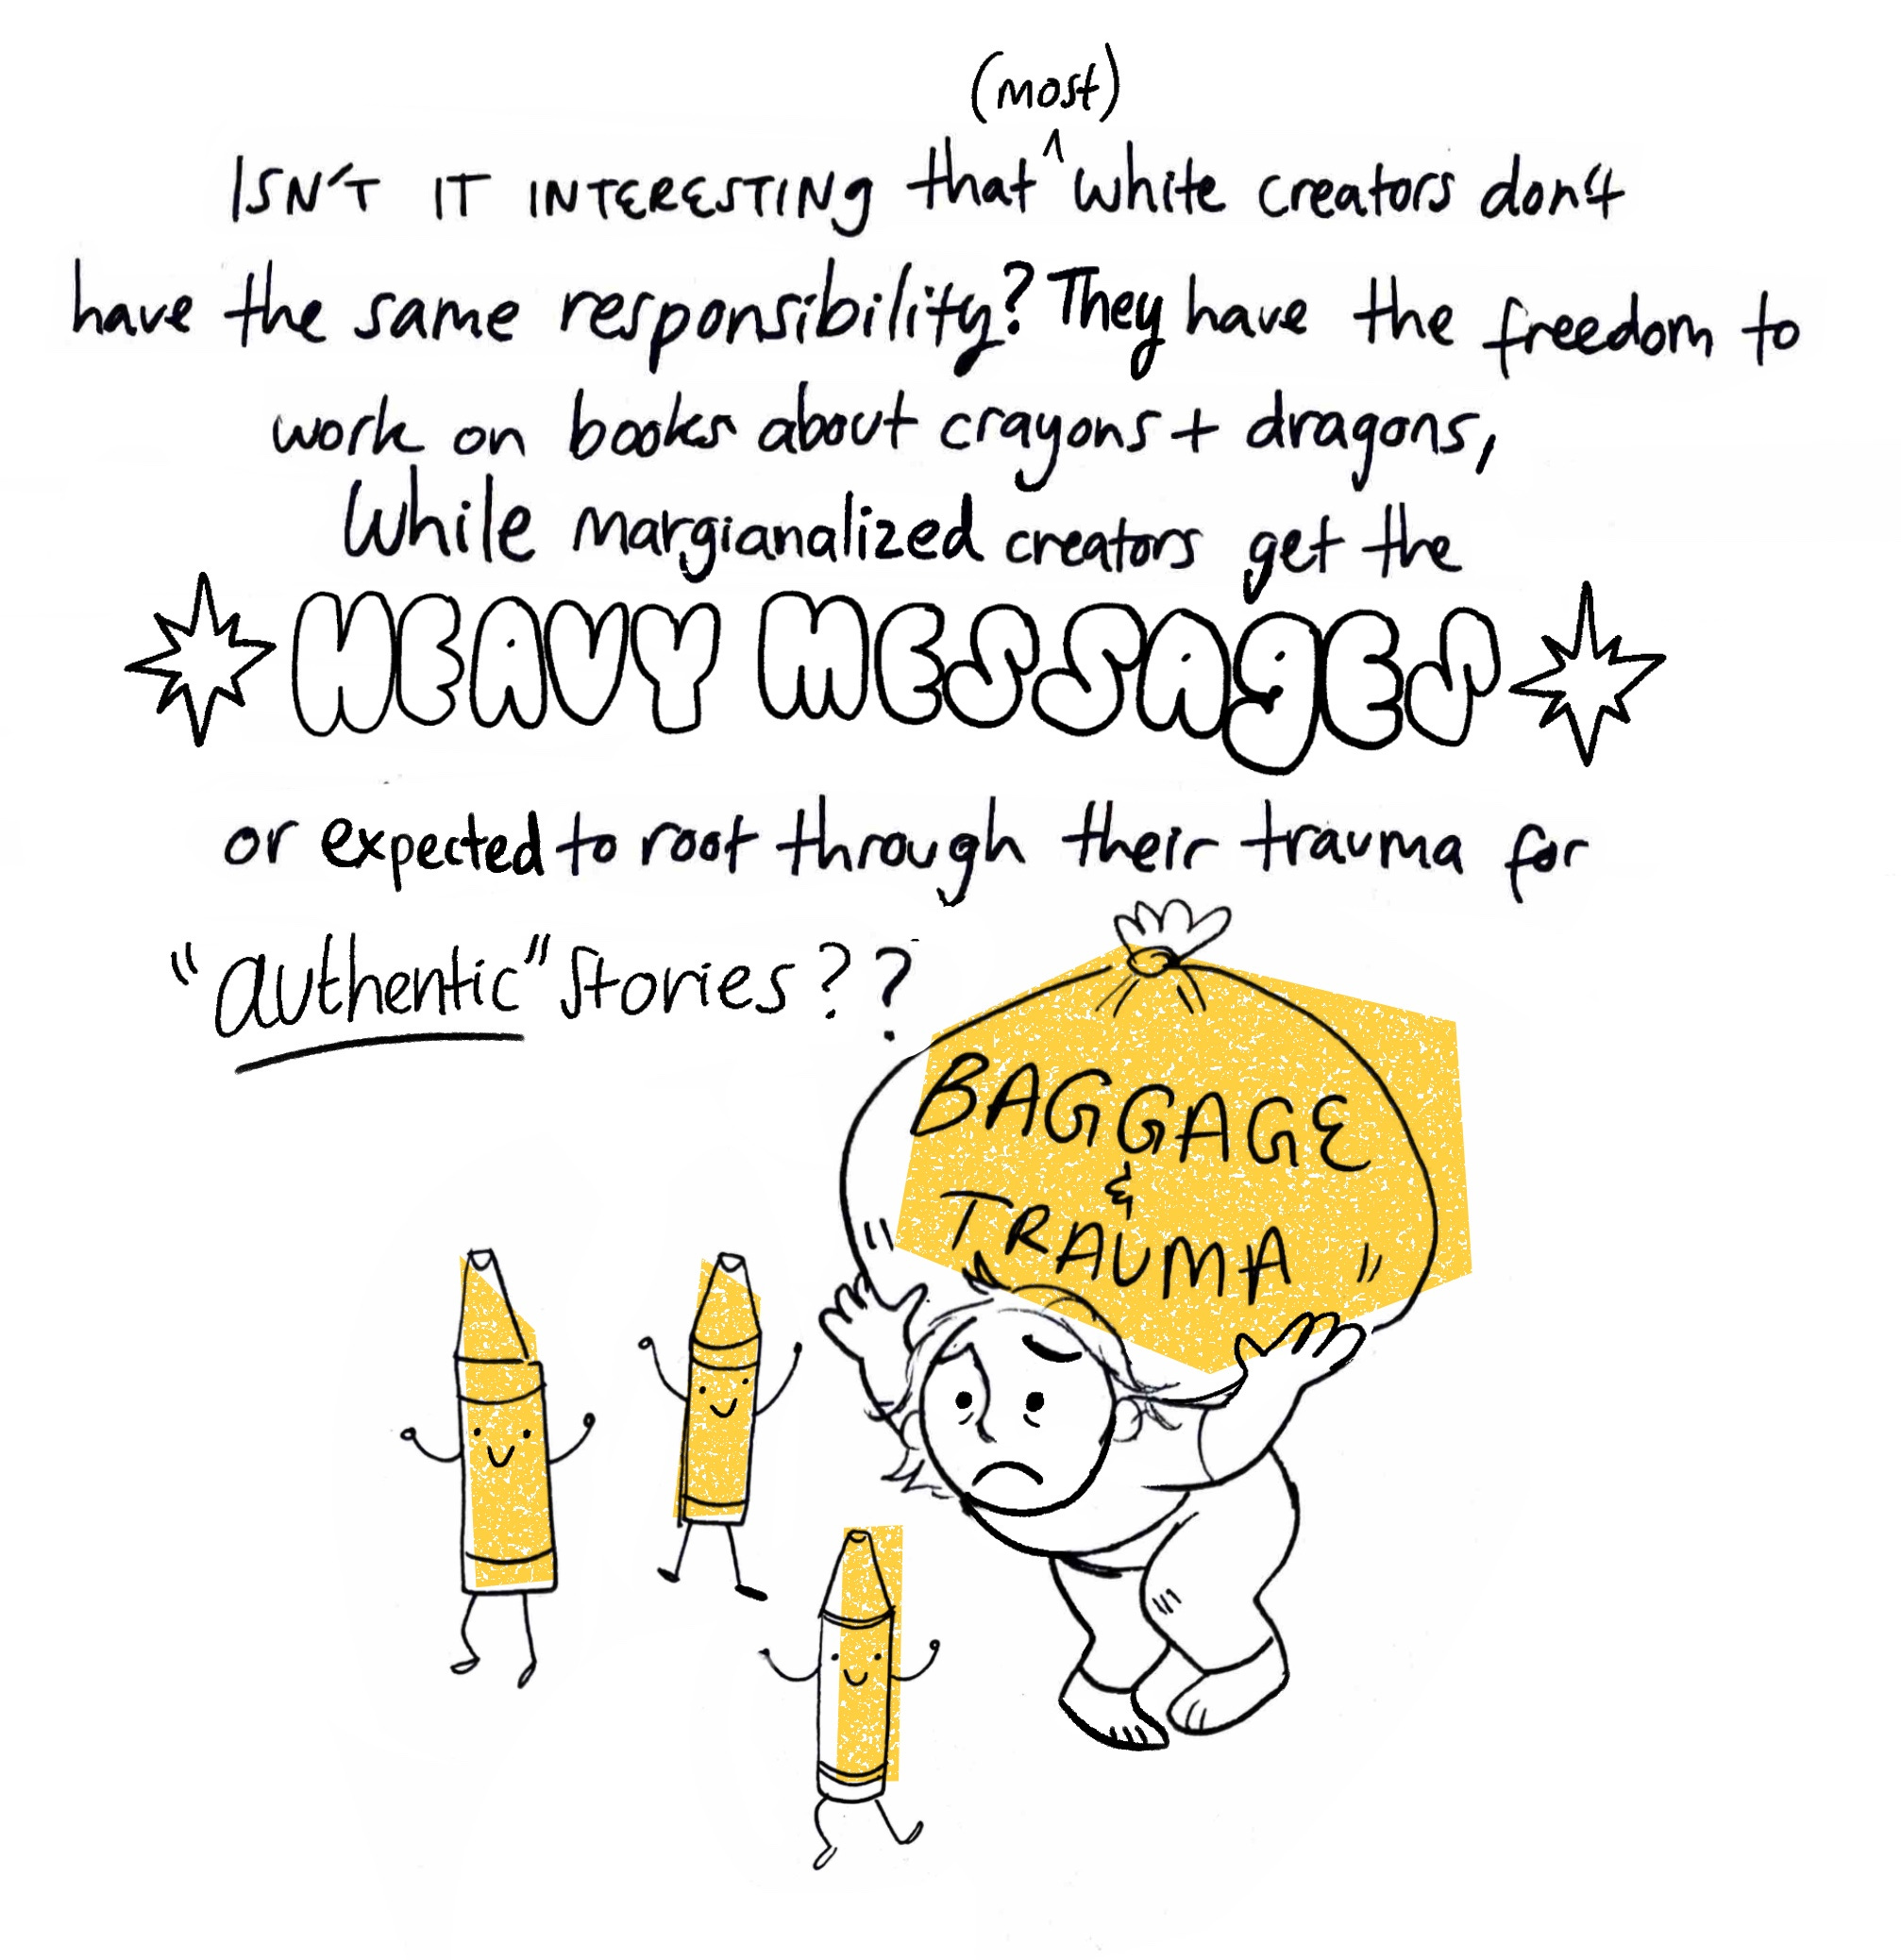 (most)
ISN'T IT INTERESTING that ^ white creators don't
have the same responsibility? They have the freedom to
work on books about crayons + dragons,
While margianalized creators get the
HEAVY MESSAGES
or expected to root through their trauma for
"authentic" stories??
BAGGAGE
&
TRAUMA